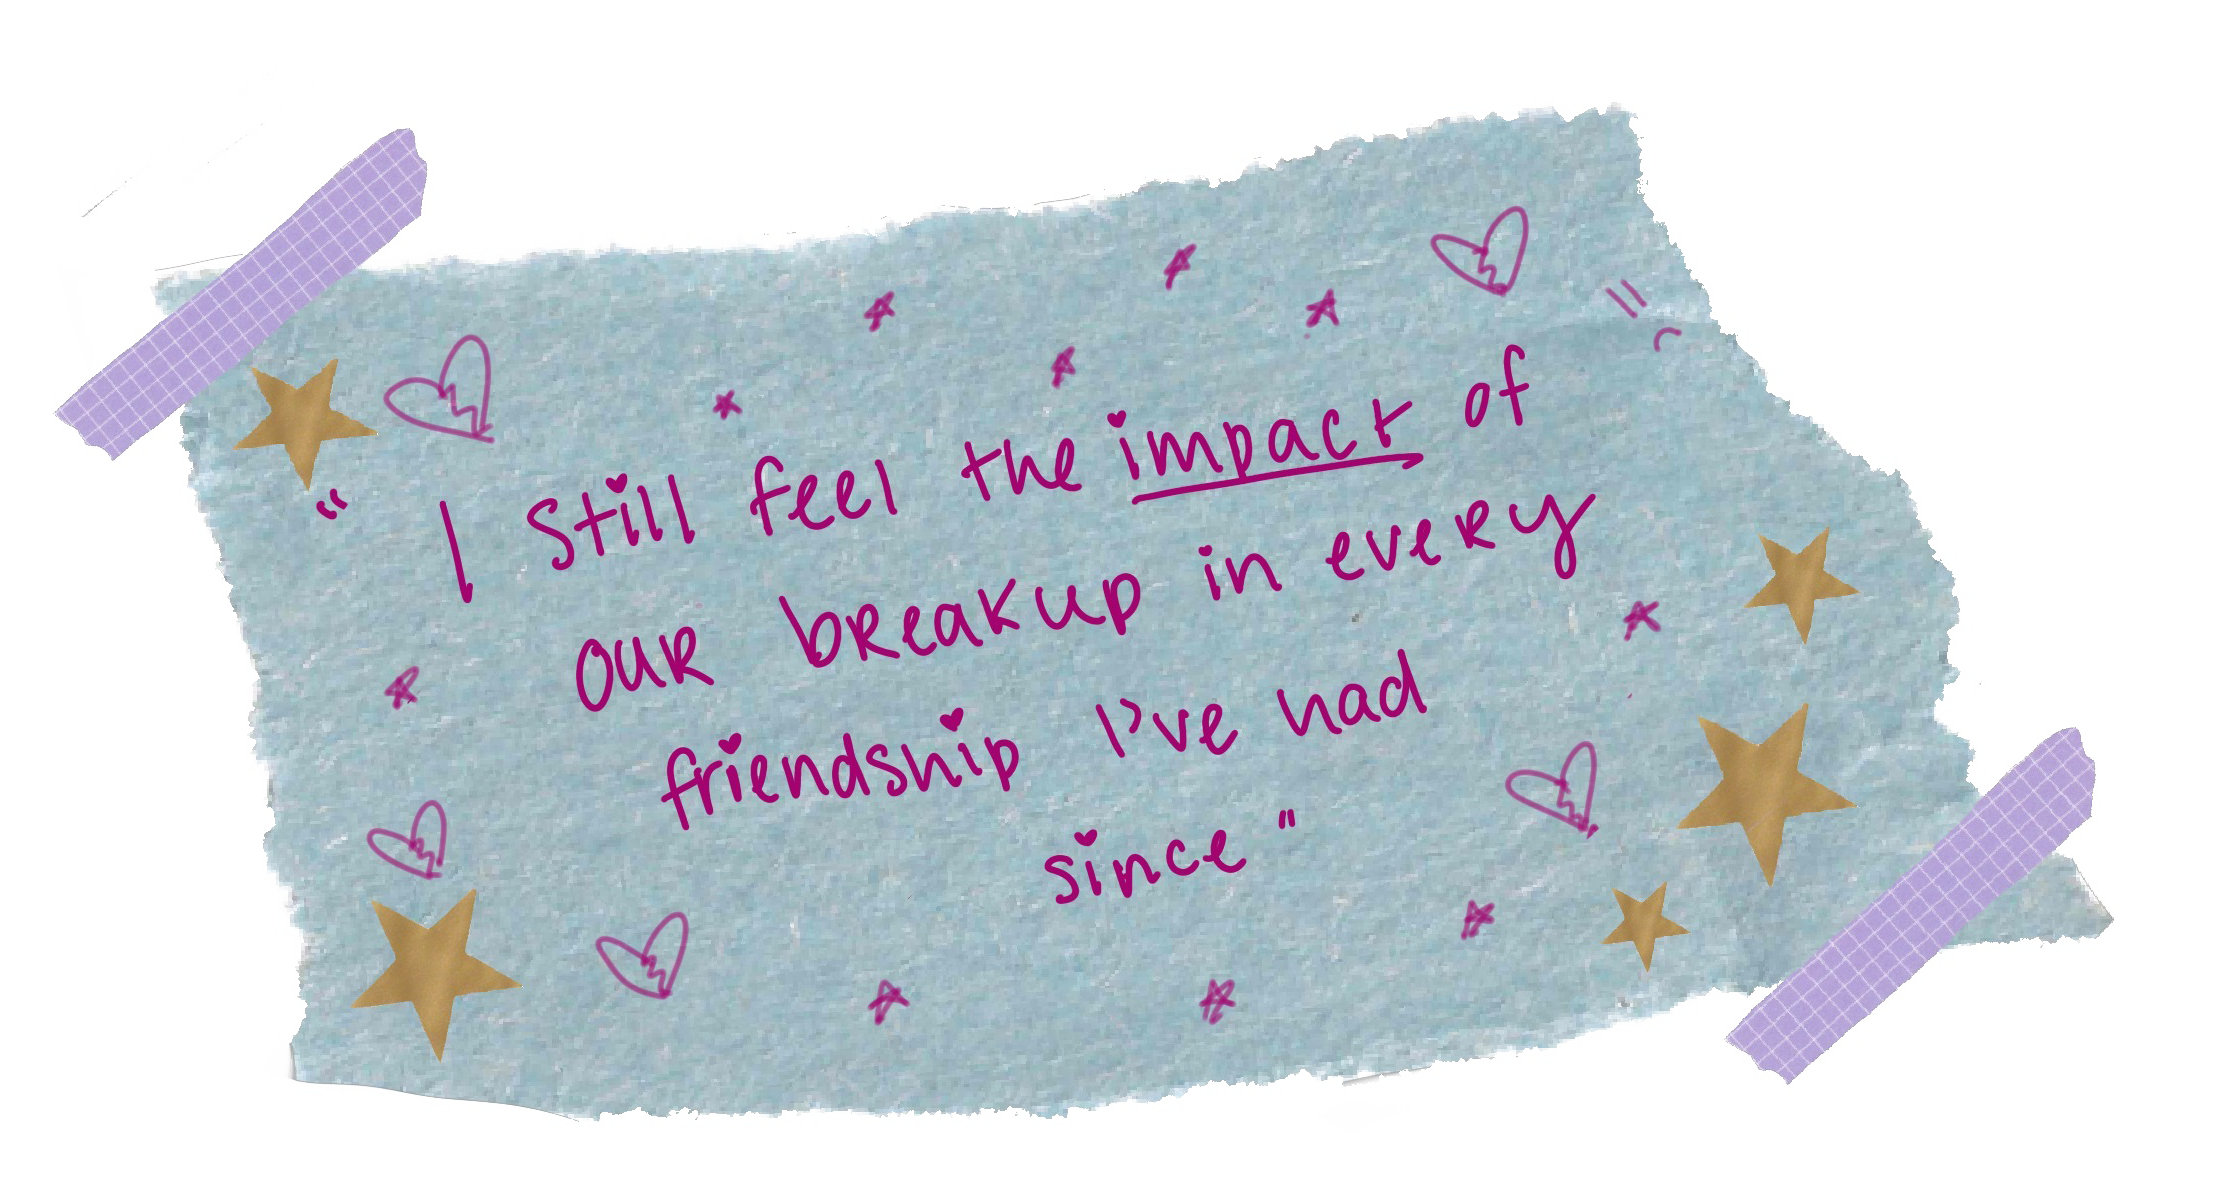 “ I still feel the impact of
our breakup in every
friendship I've had
since "